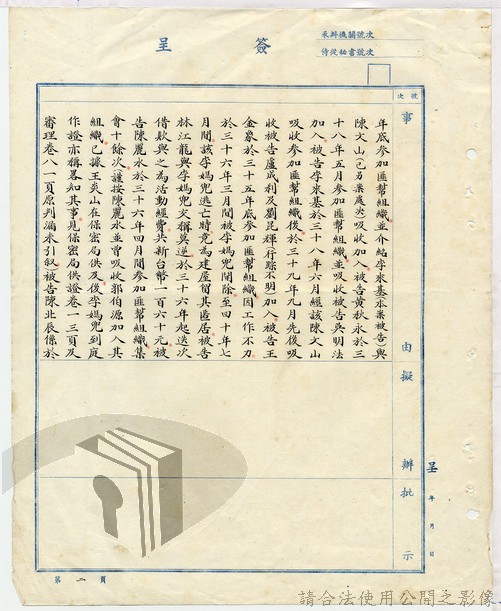 簽呈
承辦機關號次
侍從祕書號次
號次
事由擬辦批示
年底參加匪幫組織並介紹李來基(本案被告)與
陳文山(已另案處決)吸收加入被告黃秋永於三
十八年五月參加匪幫組織並吸收被告吳明法
加入被告李來基於三十八年六月經該陳文山
吸收參加匪幫組織後於三十九年九月先後吸
收被告盧成利及劉昆輝(行踪不明)加入被告王
金象於三十五年底參加匪幫組織因工作不力
於三十六年三月間被李媽兜開除至四十年七
月間該李媽兜逃亡時竟為建屋留其匿居被告
林江龍與李媽兜交稱莫逆於三十六年起迭次
借款與之為活動經費共新台幣一百六十元被
告陳麗水於三十六年四月間參加匪幫組織集
會十餘次護按陳麗水並曾吸收郭伯源加入其
組織已據王炎山在保密局供及後李媽兜到庭
作證亦稱畧知其事見保密局供證卷一一三頁及
審理卷八一頁原判漏未引敘)被告陳北辰係於
呈 年 月 日
第二頁
請合法使用公開之影像